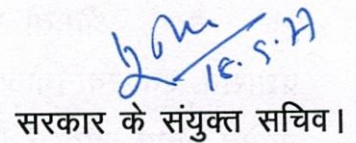 18.5.77
सरकार के संयुक्त सचिव।